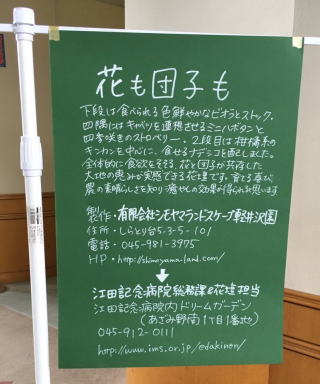 花も団子も
下段は食べられる色鮮やかなビオラとストック。
四隅にはキャベツを連想させるミニハボタンと
四季咲きのストロベリー。2段目は柑橘系の
キンカンを中心に、食せるナデシコを配しました。
全体的に食欲をそそる、花と団子が共存した
大地の恵みが実感できる花壇です。育てる喜び
農の素晴らしさを知り癒やしの効果が得られると思います
製作・有限会社シモヤマランドスケープ軽井沢園
住所・しらとり台5-3-5-101
電話・045-981-3975
HP・http://shimoyama-land.com/
江田記念病院総務課 花壇担当
江田記念病院内ドリームガーデン
(あざみ野南1丁目1番地)
045-912-0111
http://www.ims.or.jp/edakinen/